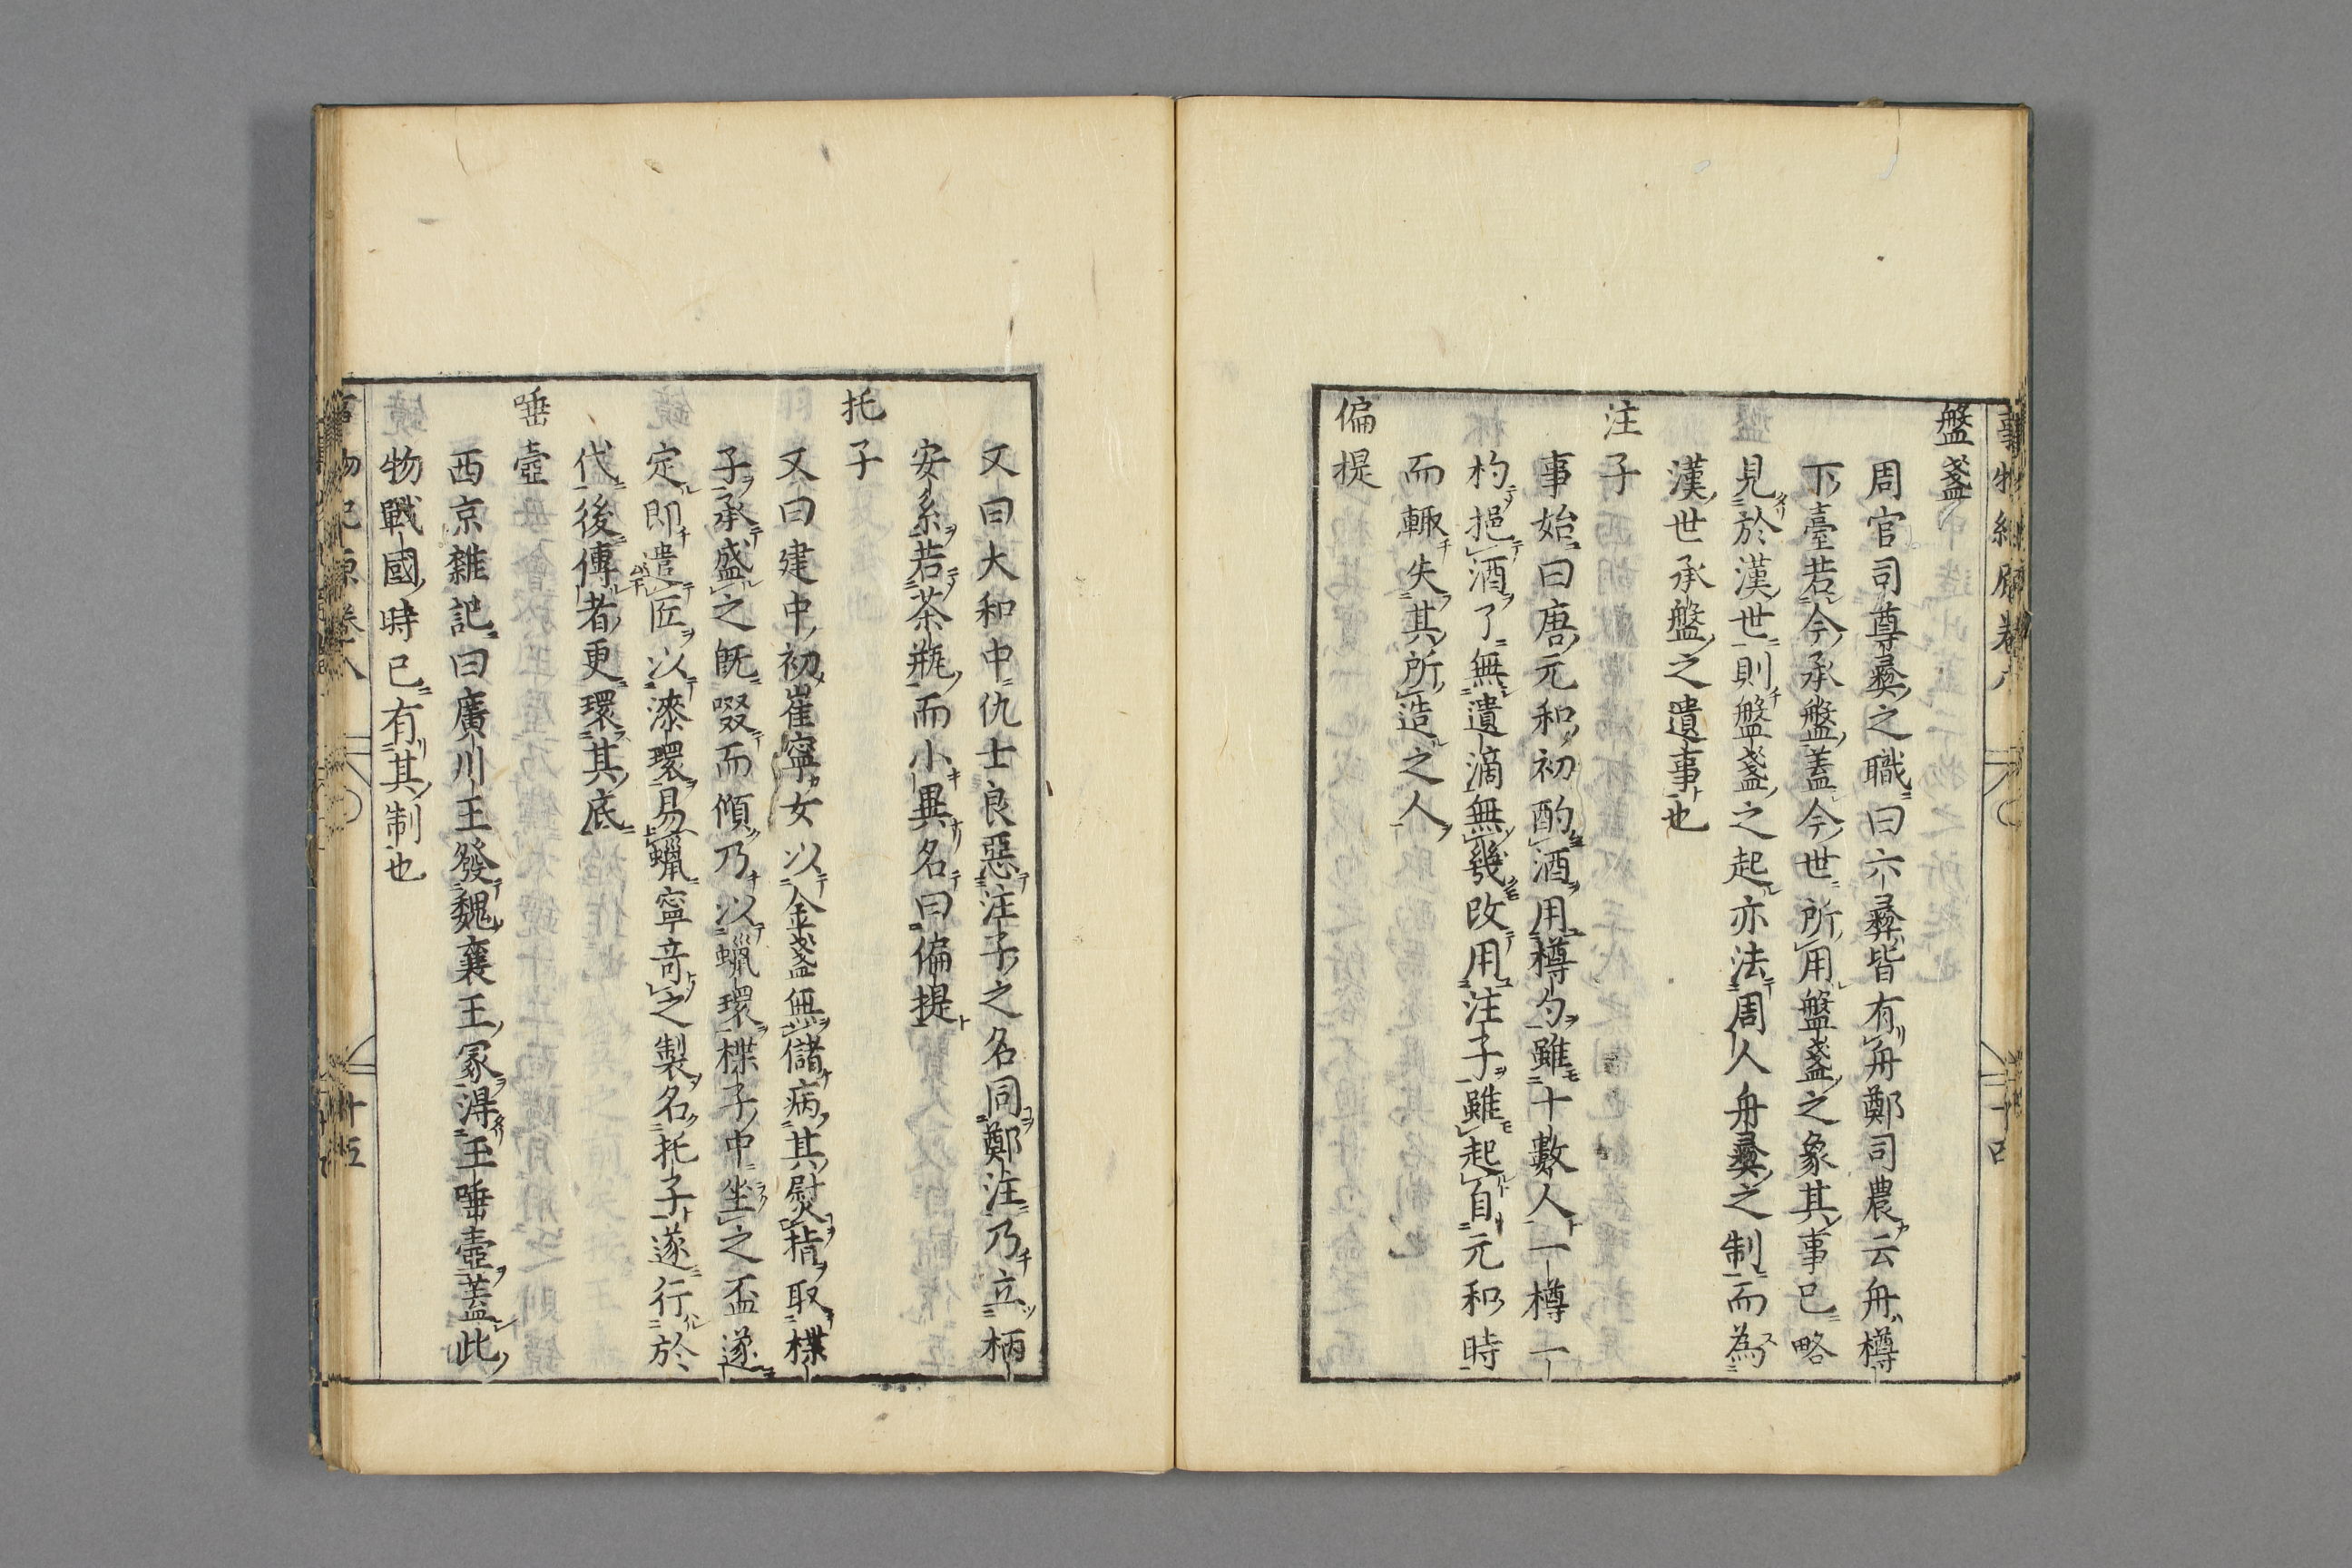 盤盞
周官司尊彝之職曰六彝皆有舟鄭司農云舟樽
下臺若今承盤蓋今世所用盤盞之象其事已略
見於漢世則盤盞之起亦法周人舟彝之制而為
漢世承盤之遺事也
注子
事始曰唐元和初酌酒用樽勺雖十數人一樽一
杓挹酒了無遺滴無幾改用注子雖起自元和時
而輙失其所造之人
偏提
又曰大和中仇士良惡注子之名同鄭注乃立柄
安系若茶瓶而小異名曰偏提
托子
又曰建中初崔寧女以金盞無儲病其熨指取楪
子承盛之既啜而傾乃以蠟環楪子中坐之盃遂
定即遣匠以漆環易蠟寧竒之製名托子遂行於
代後傳者更環其底
唾壺
西京雜記曰廣川王發魏襄王冢淂玉唾壺蓋此
物戰國時已有其制也
事物紀原卷八
十五